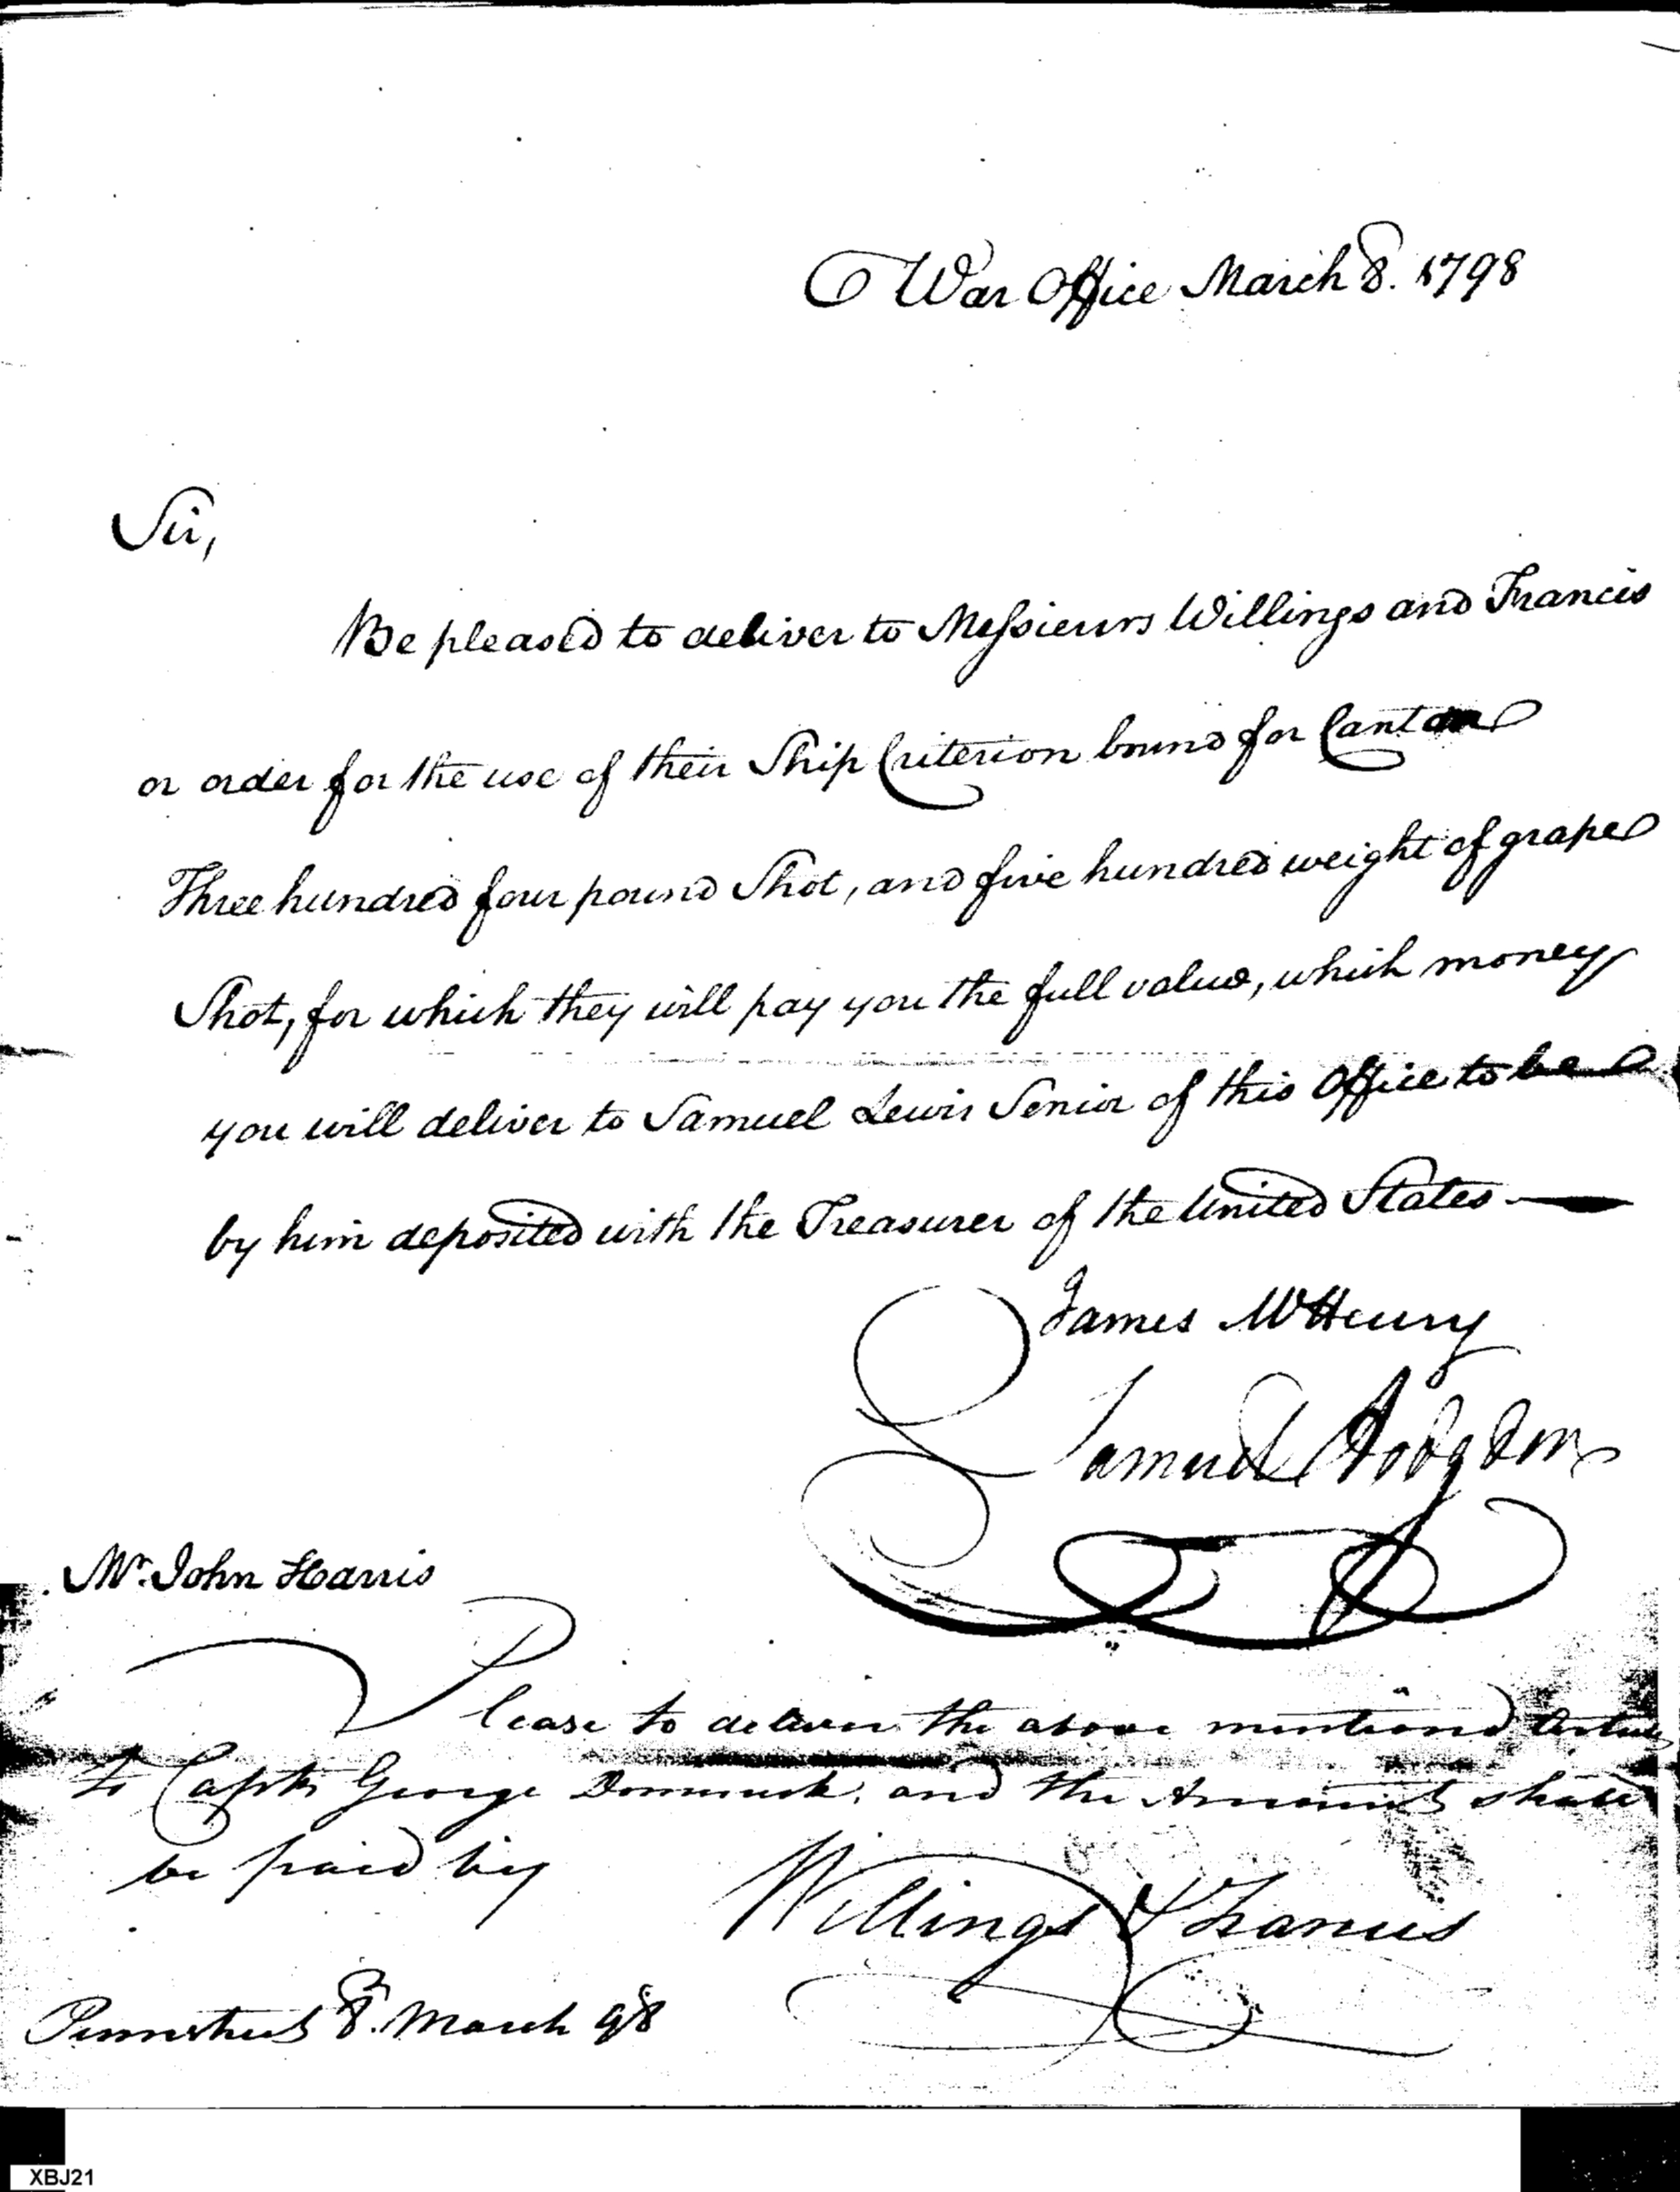 War Office March 8. 1798
Sir,
Be pleased to deliver to Messieurs Willings and Francis
or order for the use of their Ship Criterion bound for Canton
Three hundred four pound Shot, and five hundred weight of grape
Shot, for which they will pay you the full value, which money
you will deliver to Samuel Lewis Senior of this Office to be
by him deposited with the Treasurer of the United States
James McHenry
Samuel Hodgdon
Mr. John Harris
Please to deliver the above mentiond
to Captn George Dominick, and the Amount shall
be paid by
Willings & Francis
Pennstreet 8. March 98
XBJ21